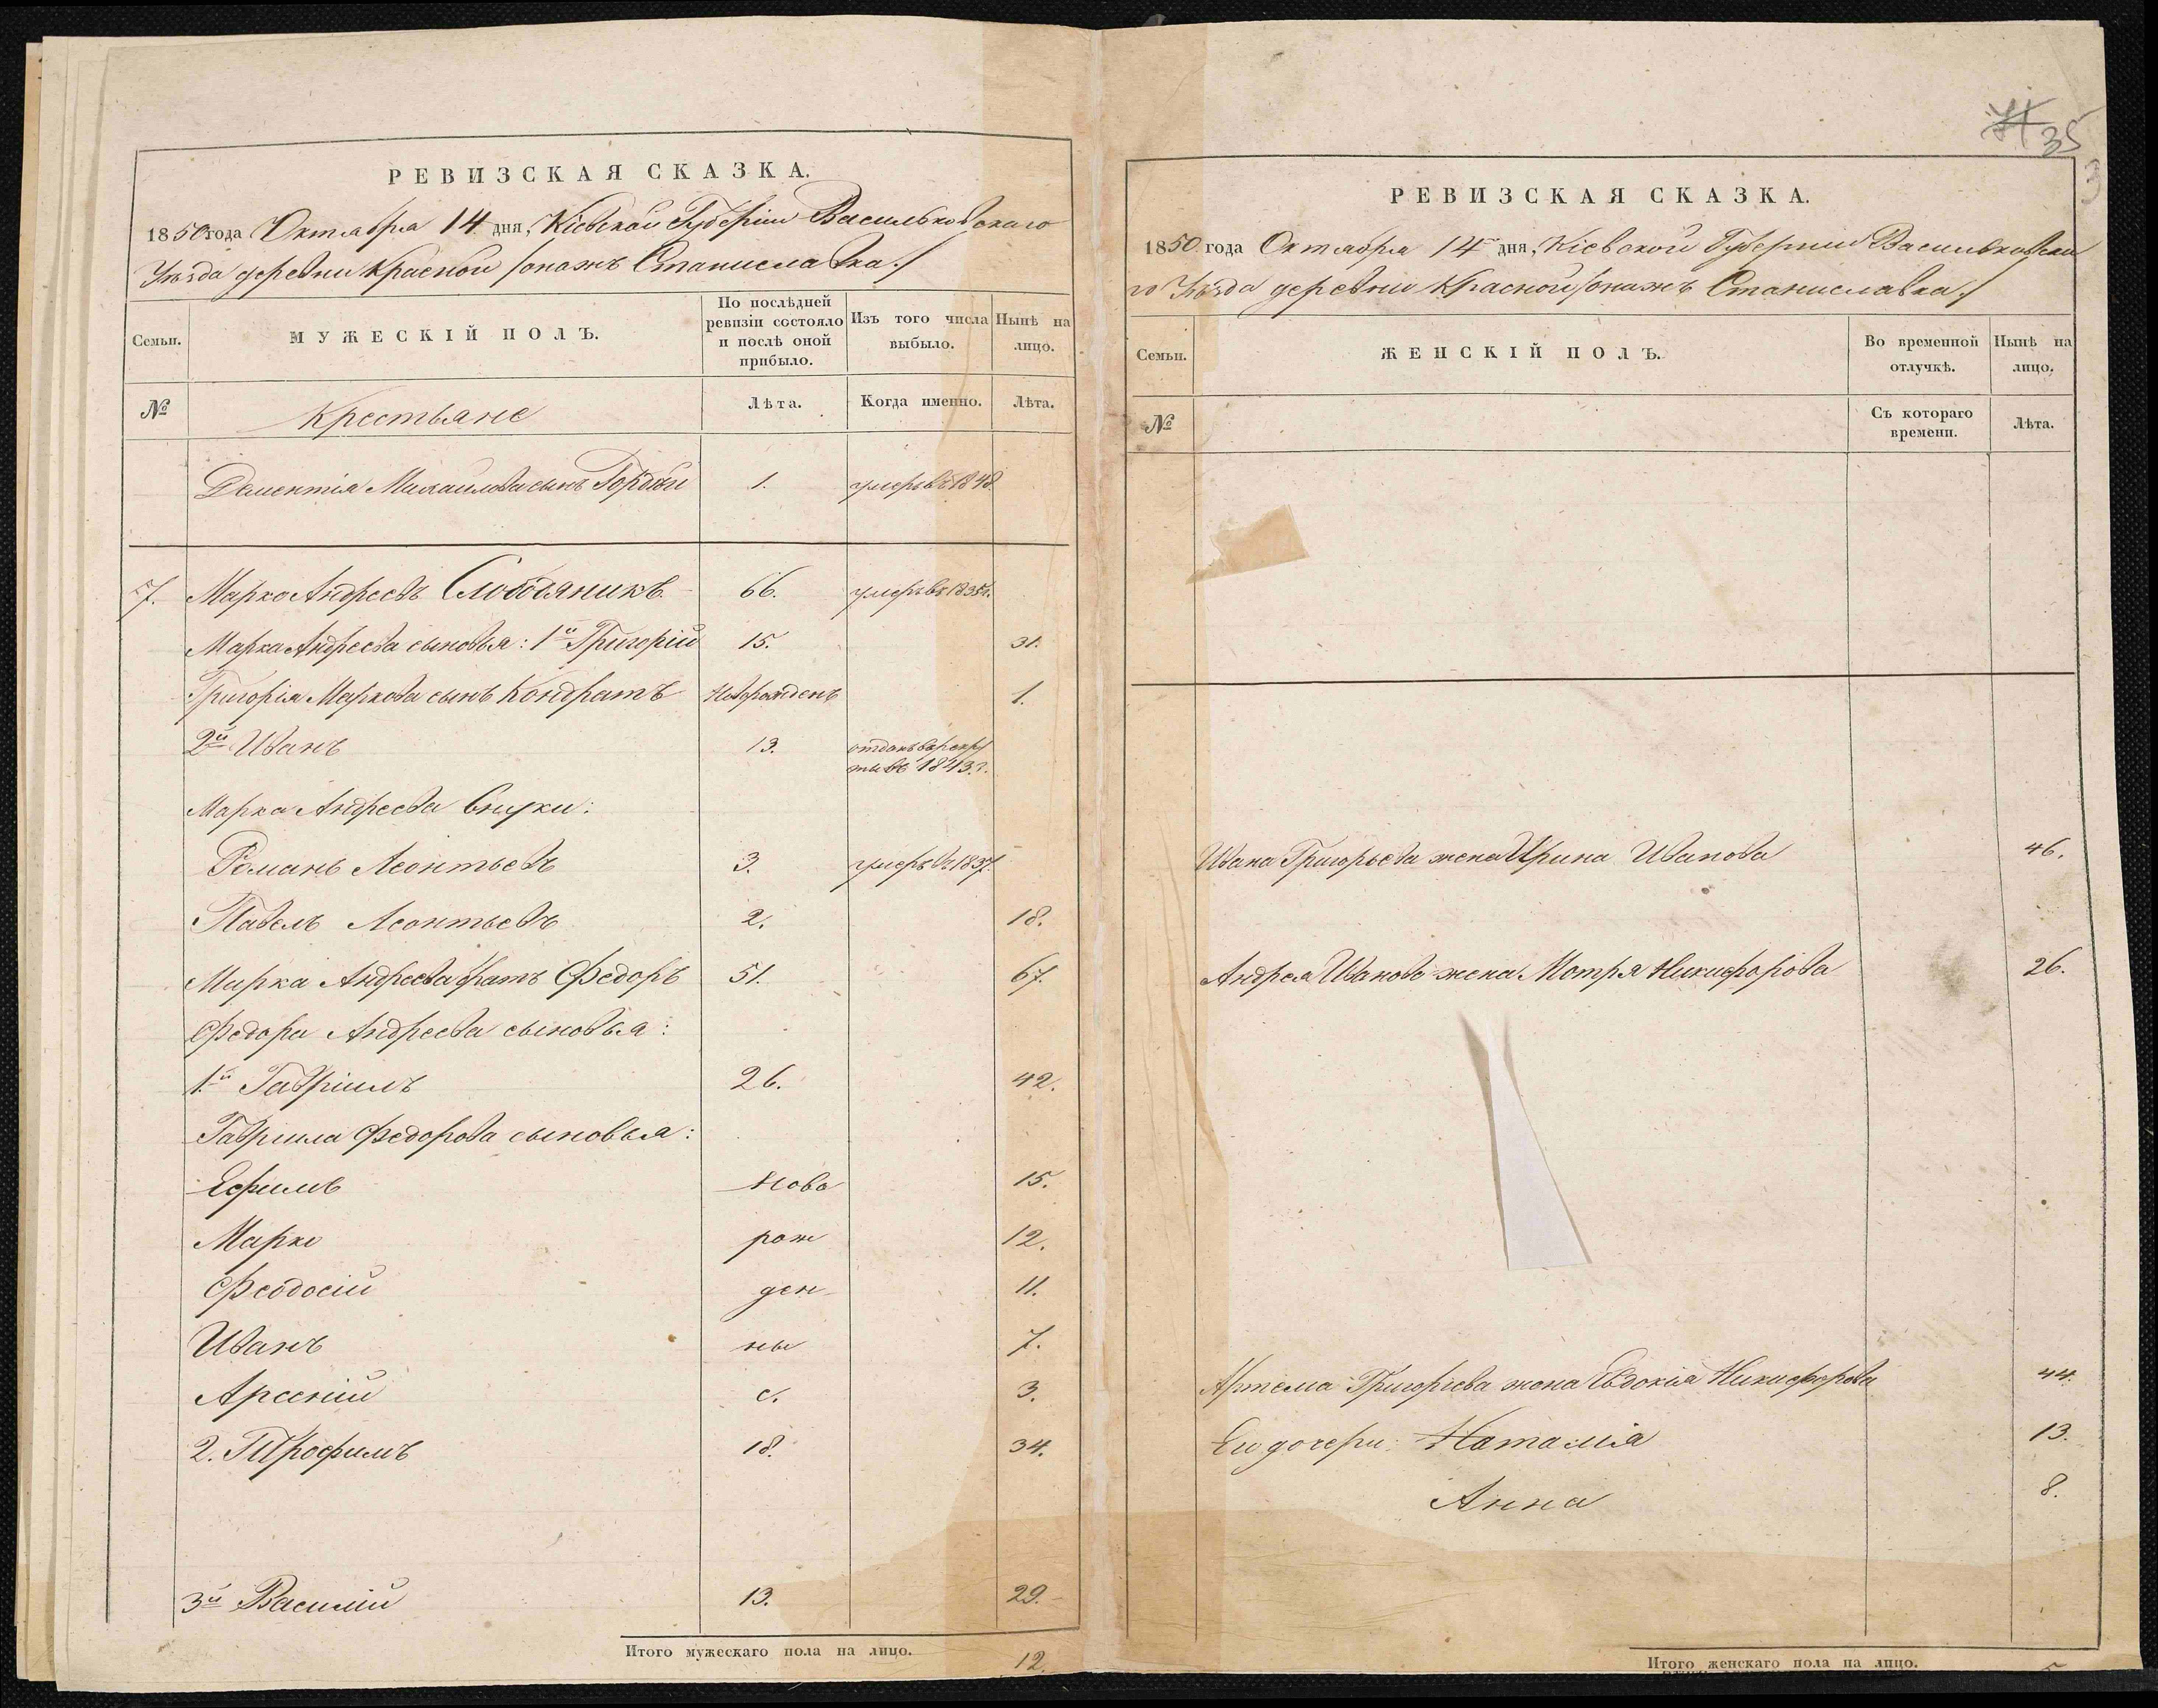 РЕВИЗСКАЯ СКАЗКА.
1850 года Октября 14 дня, Кіевской Губерніи Васильковскаго
Уѣзда деревни Красной /онажъ Станиславка./
Семьи.
МУЖЕСКІЙ ПОЛЪ.
По послѣдней ревизіи состояло и послѣ оной прибыло.
Изъ того числа выбыло.
Нынѣ на лицо.
№
Крестьяне
Лѣта.
Когда именно.
Лѣта.
Дементія Михайлова сынъ Гордѣй 1. умеръ въ 1848
7. Марко Андреевъ Слободяникъ 66. умеръ въ 1835г.
Марка Андреева сыновья: 1й Григорій 15. 31.
Григорія Маркова сынъ Кондратъ Новорожденъ 1.
2й Иванъ 13. отданъ въ рекру
ты въ 1843 г.
Марка Андреева внуки:
Романъ Леонтьевъ 3. умеръ въ 1837.
Павелъ Леонтьевъ 2. 18.
Марка Андреева братъ Федоръ 51. 67.
Федора Андреева сыновья:
1й Гавріилъ 26. 42.
Гавриила Федорова сыновья:
Ефимъ Ново 15.
Марко рож 12.
Феодосій ден 11.
Иванъ ны 7.
Арсеній е. 3.
2. Трофимъ 18. 34.
3й Василій 13. 29.
Итого мужескаго пола на лицо. 12.
35
3
РЕВИЗСКАЯ СКАЗКА.
1850 года Октября 14 дня, Кіевской Губерніи Васильковска
го Уѣзда деревни Красной /онажъ Станиславка./
Семьи.
ЖЕНСКІЙ ПОЛЪ.
Во временной отлучкѣ.
Нынѣ на лицо.
№
Съ котораго времени.
Лѣта.
Ивана Григорьева жена Ирина Иванова 46.
Андрея Иванова жена Мотря Никифорова 26.
Артема Григорьева жена Евдокія Никифорова 44.
Ею дочери: Наталія 13.
Анна 8.
Итого женскаго пола на лицо.